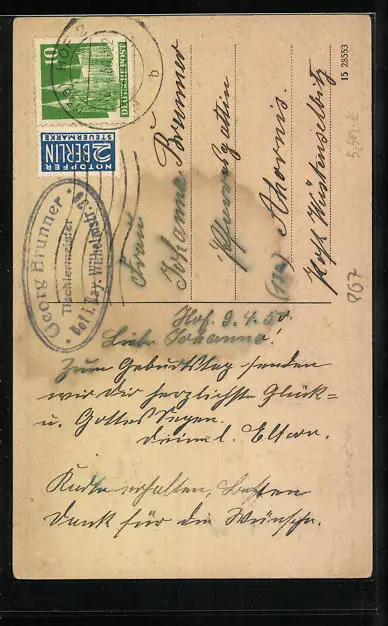 10
DEUTSCHE POST
HOF
b
NOTOPFER
2 BERLIN
STEUERMARKE
Georg Brunner
Tischlermeister
Hof i. Bay. Wilhelmstr.
Frau
Johanna Brunner
Ahornis.
Post
15 28553
867
Hof. 9.4.50.
Liebe Johanna!
Zum Geburtstag senden
wir dir herzlichste Glück=
u. Gottes Segen.
Deine l. Eltern.
Karte erhalten, Besten
Dank für die Wünsche.